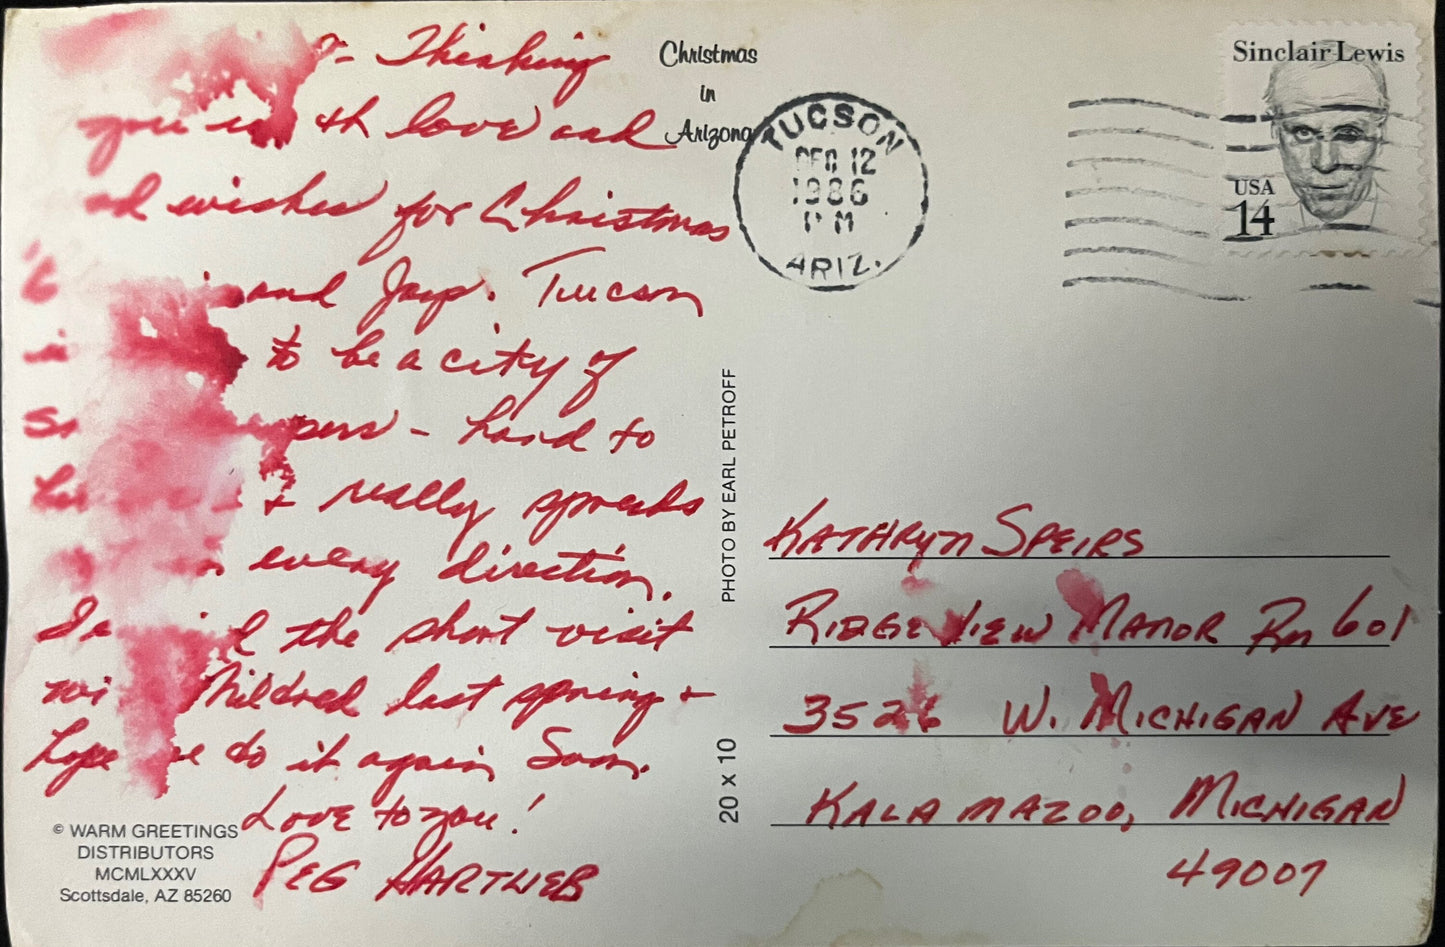 - Thinking
you with love and
wishes for Christmas
and Joy. Tucson
to be a city of
- hard to
+ really spreads
every direction.
the short visit
Mildred last spring +
hope do it again Soon.
Love to you!
PEG HARTLIEB
© WARM GREETINGS
DISTRIBUTORS
MCMLXXXV
Scottsdale, AZ 85260
Christmas
in
Arizona
PHOTO BY EARL PETROFF
20 x 10
TUCSON
DEC 12
1986
PM
ARIZ.
Sinclair Lewis
USA
14
KATHRYN SPEIRS
RIDGE VIEW MANOR RM 601
3526 W. MICHIGAN AVE
KALAMAZOO, MICHIGAN
49007